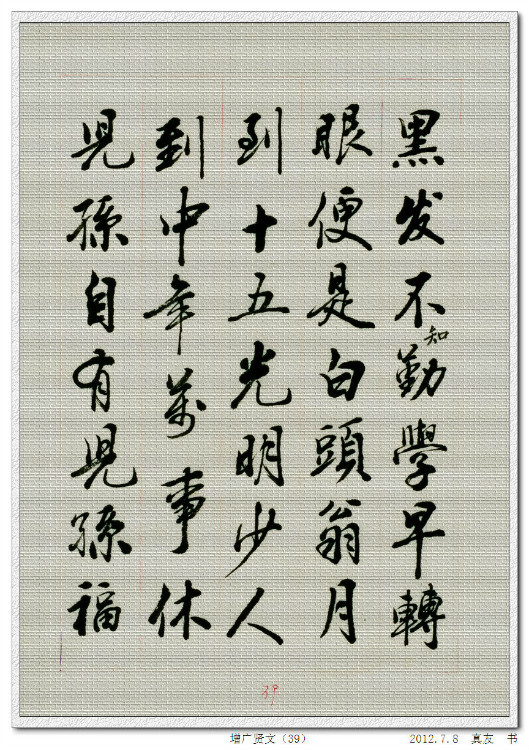 黑发不知勤學早轉
眼便是白頭翁月
到十五光明少人
到中年萬事休
兒孫自有兒孫福
39
增广贤文（39）
2012.7.8 真友 书